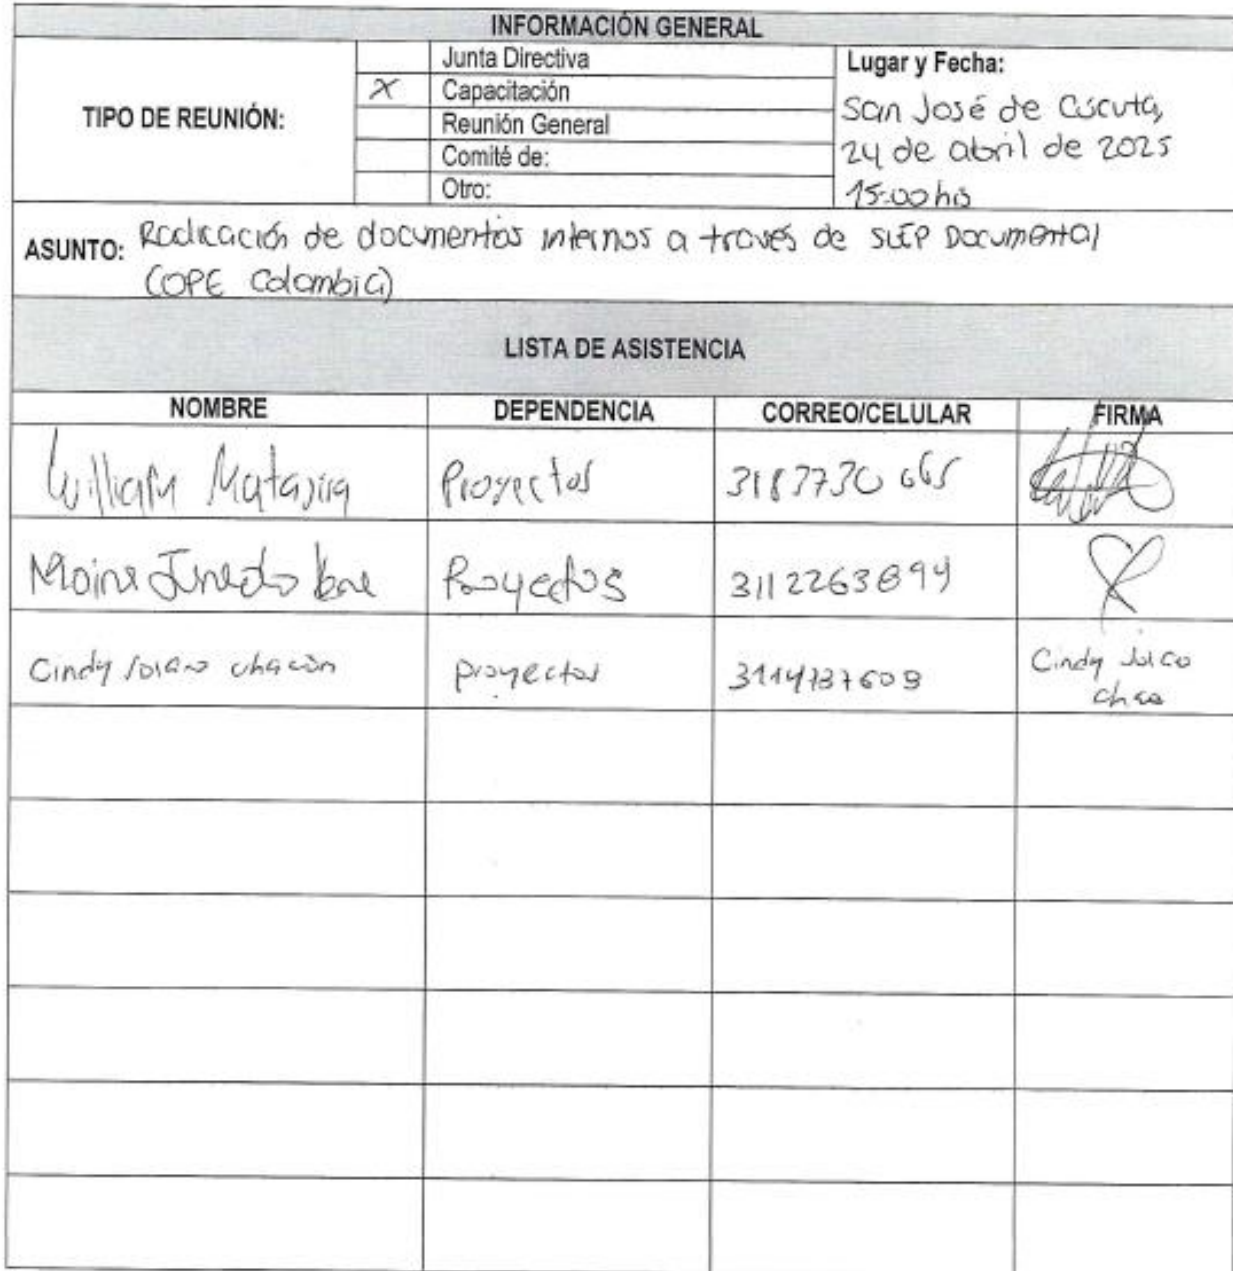 INFORMACIÓN GENERAL
TIPO DE REUNIÓN:
Junta Directiva
X Capacitación
Reunión General
Comité de:
Otro:
Lugar y Fecha:
San José de Cúcuta,
24 de abril de 2025
15:00 hrs
ASUNTO: Radicación de documentos internos a través de
Documental
(COPE Colombia)
LISTA DE ASISTENCIA
NOMBRE DEPENDENCIA CORREO/CELULAR FIRMA
William Matajira Proyectos 3183730665
Proyectos 3112263894
Cindy Solano Chacón proyectos 3114737609 Cindy